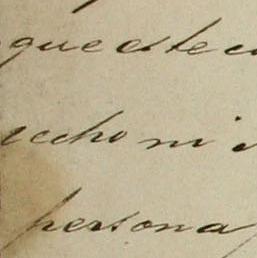 que este
echo ni
persona